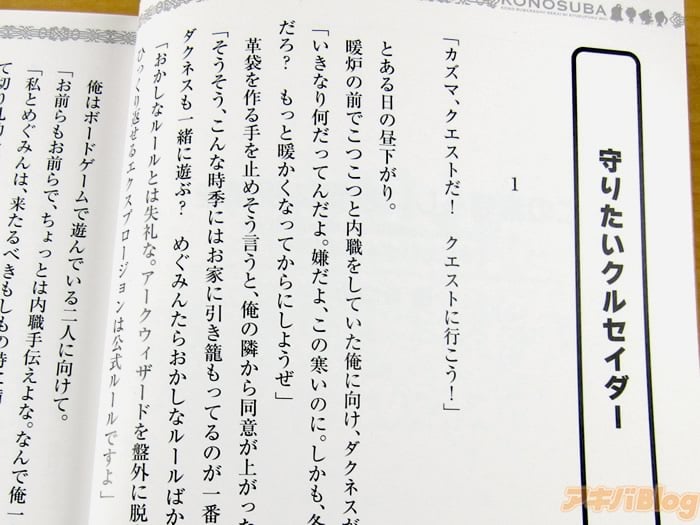 KONOSUBA
守りたいクルセイダー
1
「カズマ、クエストだ！　クエストに行こう！」
とある日の昼下がり。
暖炉の前でこつこつと内職をしていた俺に向け、ダクネスが
「いきなり何だってんだよ。嫌だよ、この寒いのに。しかも、冬
だろ？　もっと暖かくなってからにしようぜ」
革袋を作る手を止めそう言うと、俺の隣から同意が上がった
「そうそう、こんな時季にはお家に引き籠もってるのが一番
ダクネスも一緒に遊ぶ？　めぐみんたらおかしなルールばか
「おかしなルールとは失礼な。アークウィザードを盤外に脱
ひっくり返せるエクスプロージョンは公式ルールですよ」
俺はボードゲームで遊んでいる二人に向けて。
「お前らもお前らで、ちょっとは内職手伝えよな。なんで俺一
「私とめぐみんは、来たるべきもしもの時に
アキバBlog